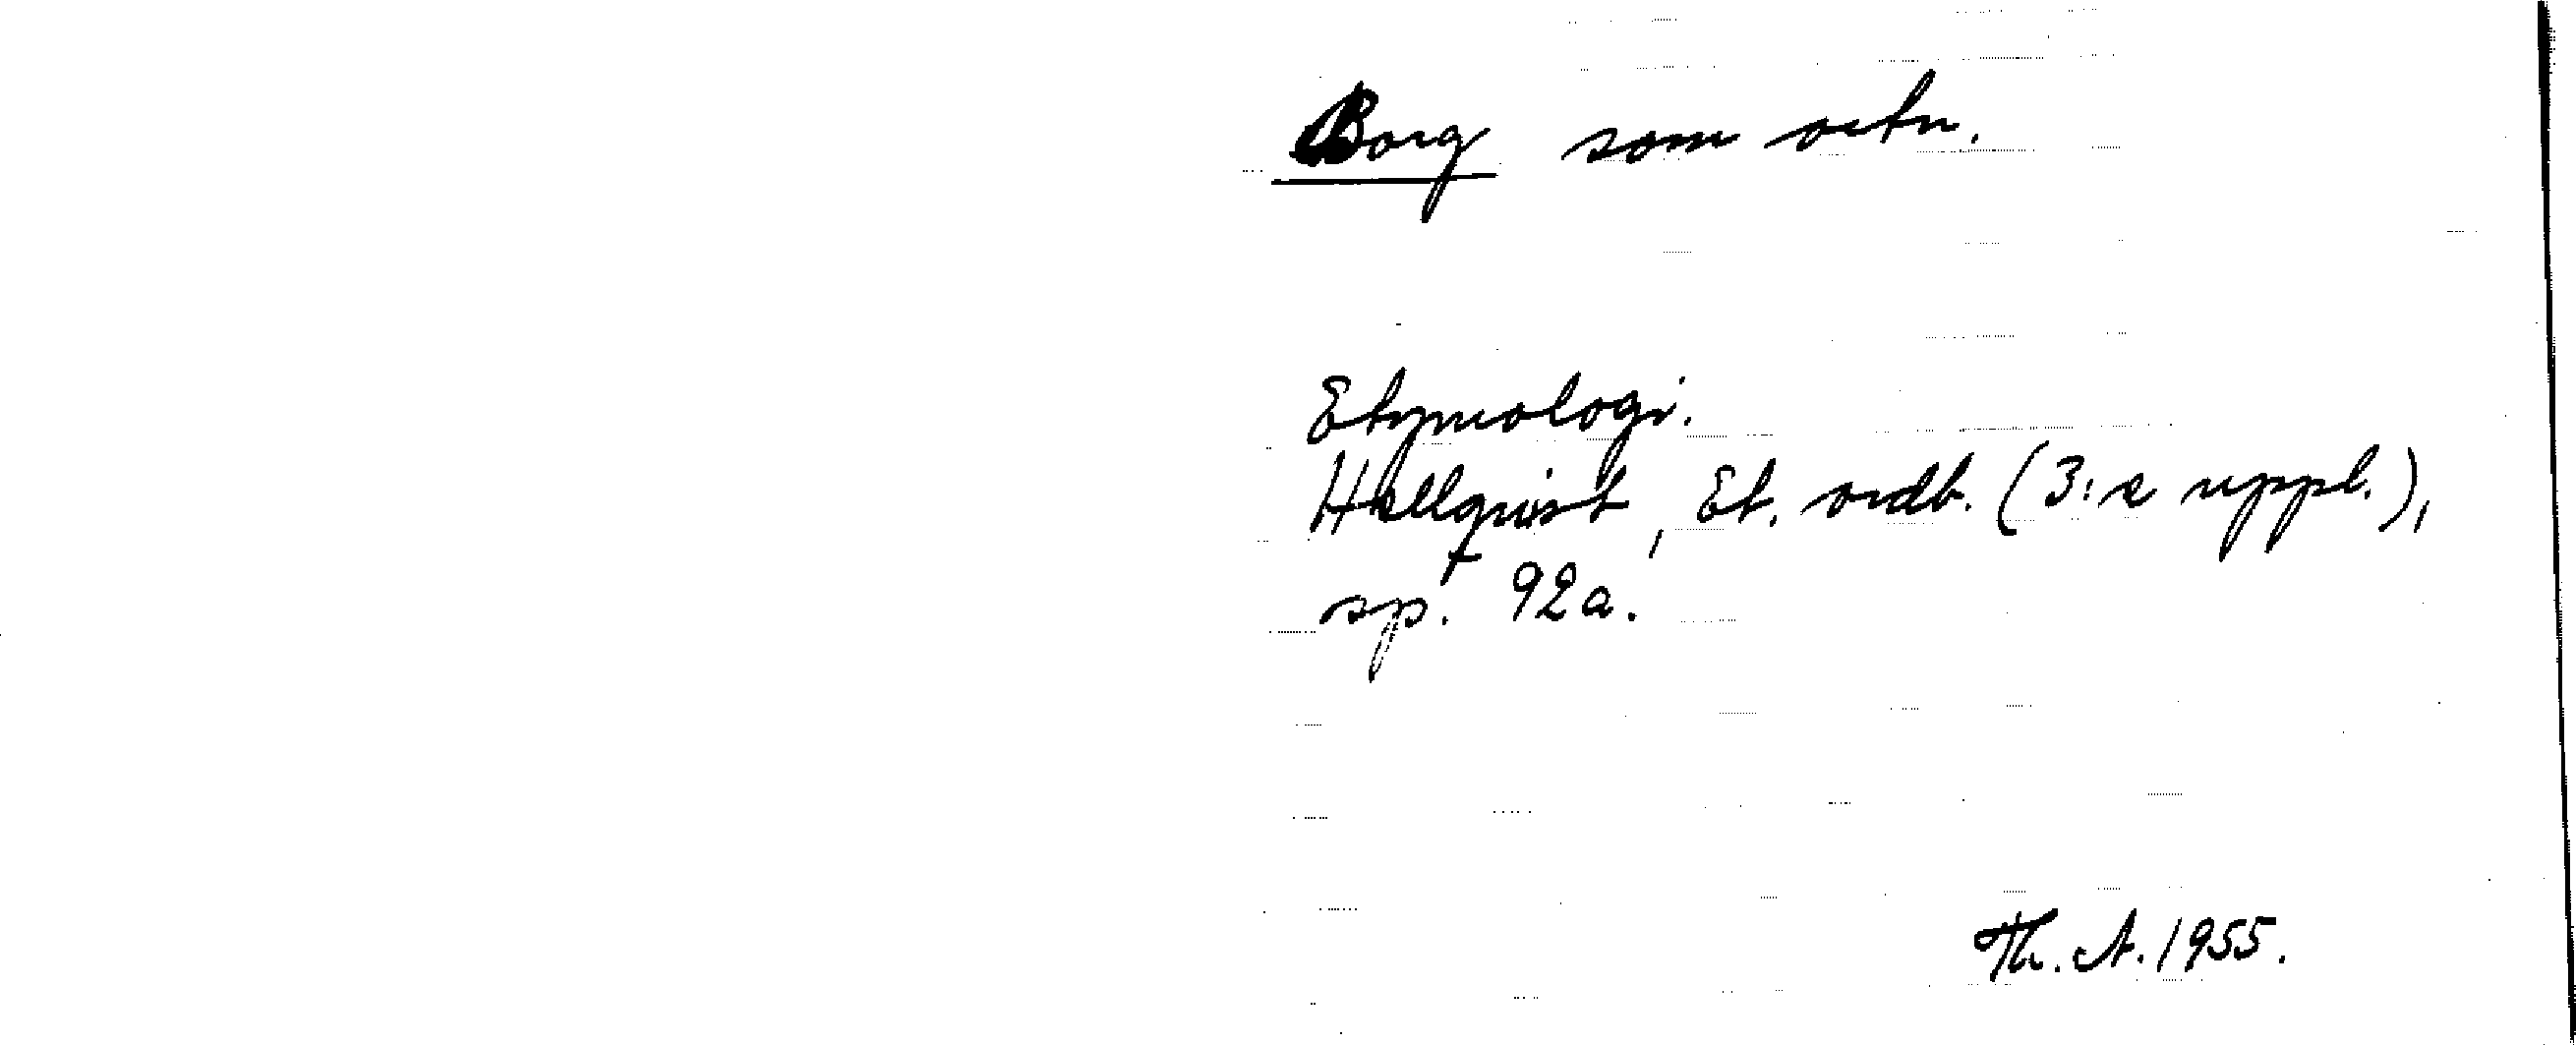 Borg som ortn.
Etymologi.
Hellquist, Et. ordb. (3:e uppl.),
sp. 92a.
Th. A. 1955.